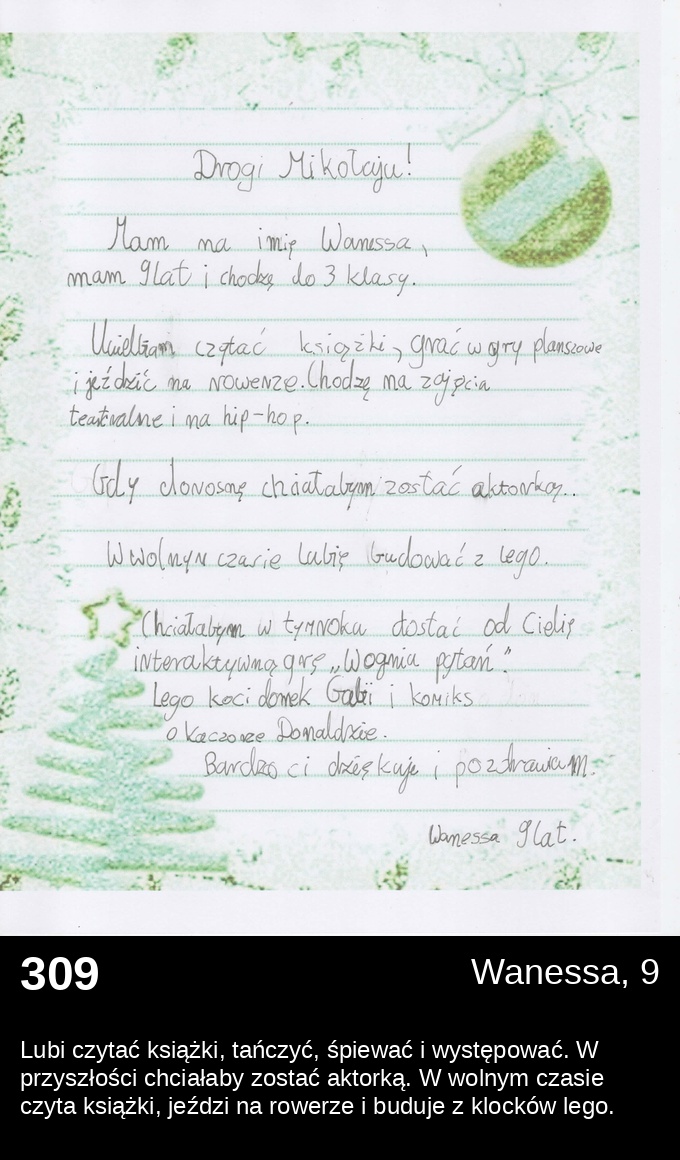 Drogi Mikołaju!
Mam na imię Wanessa,
mam 9lat i chodzę do 3 klasy.
Uwielbiam czytać książki, grać w gry planszowe
i jeździć na rowerze. Chodzę na zajęcia
teatralne i na hip-hop.
Gdy dorosnę chciałabym zostać aktorką..
W wolnym czasie lubię budować z lego.
Chciałabym w tym roku dostać od Ciebię
interaktywną grę „W ogniu pytań"
Lego koci domek Gabi i komiks
o kaczorze Donaldzie.
Bardzo ci dziękuję i pozdrawiam.
Wanessa 9lat.
309
Wanessa, 9
Lubi czytać książki, tańczyć, śpiewać i występować. W
przyszłości chciałaby zostać aktorką. W wolnym czasie
czyta książki, jeździ na rowerze i buduje z klocków lego.